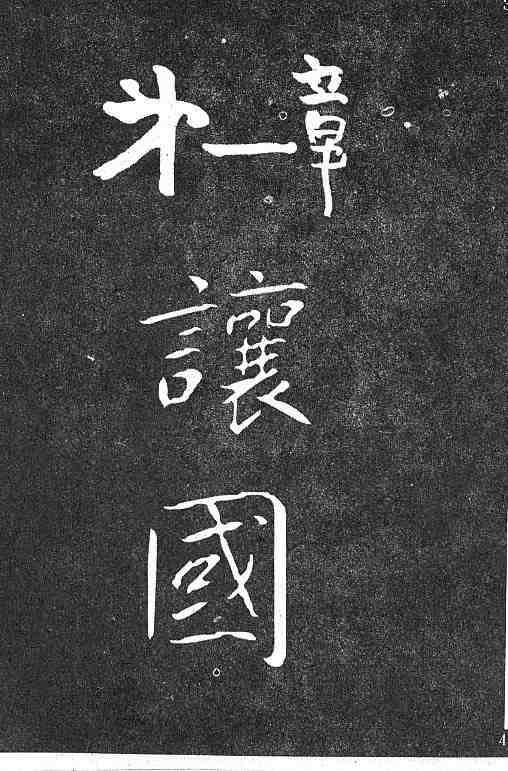 第一章
讓
國
4